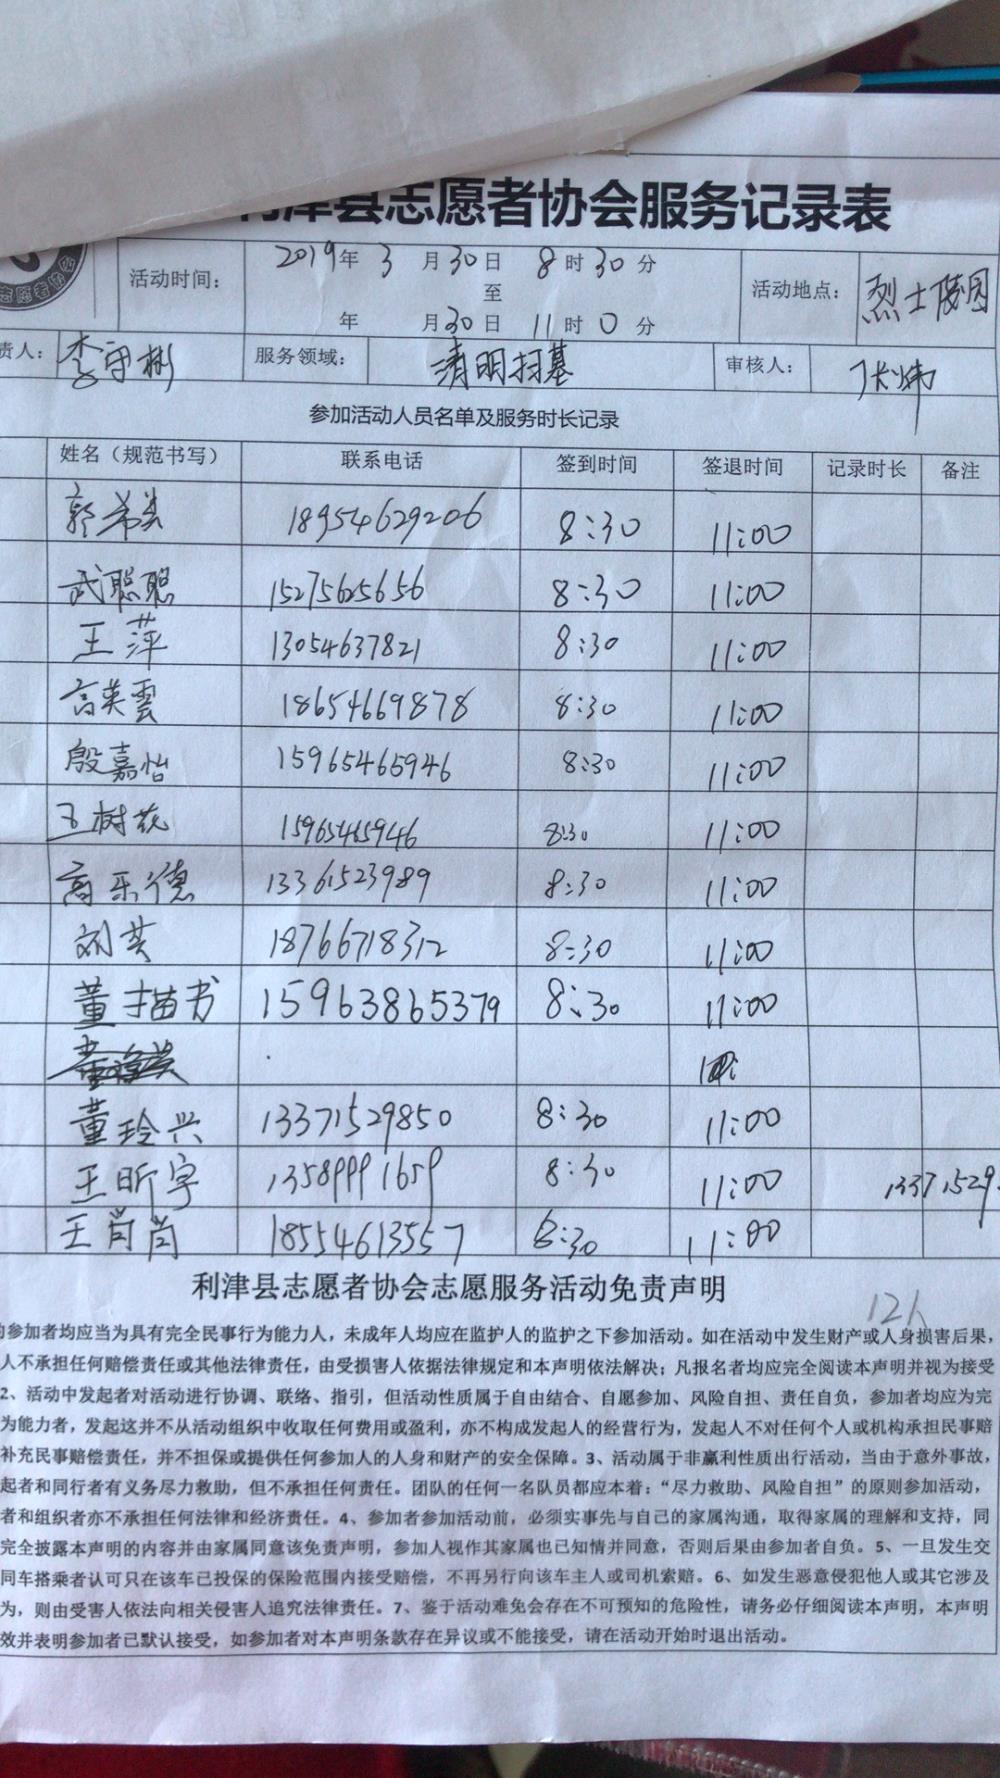 利津县志愿者协会服务记录表
志愿者协会
活动时间： 2019年 3月30日 8时30分 活动地点： 烈士陵园
至
年 月30日 11时0分
责人： 李守彬 服务领域： 清明扫墓 审核人： 张炜
参加活动人员名单及服务时长记录
姓名（规范书写） 联系电话 签到时间 签退时间 记录时长 备注
郭 18954629206 8:30 11:00
武聪聪 15275625656 8:30 11:00
王萍 13054637821 8:30 11:00
高英雲 18654669878 8:30 11:00
殷嘉怡 15965465946 8:30 11:00
王树花 15965465946 8:30 11:00
高乐德 13361523989 8:30 11:00
刘英 18766718312 8:30 11:00
董描书 15963865379 8:30 11:00
董玲兴 13371529850 8:30 11:00
王昕宇 13589991659 8:30 11:00 13371529
王肖肖 18554613557 8:30 11:00
利津县志愿者协会志愿服务活动免责声明
12人
的参加者均应当为具有完全民事行为能力人，未成年人均应在监护人的监护之下参加活动。如在活动中发生财产或人身损害后果，
人不承担任何赔偿责任或其他法律责任，由受损害人依据法律规定和本声明依法解决；凡报名者均应完全阅读本声明并视为接受
2、活动中发起者对活动进行协调、联络、指引，但活动性质属于自由结合、自愿参加、风险自担、责任自负，参加者均应为完
为能力者，发起这并不从活动组织中收取任何费用或盈利，亦不构成发起人的经营行为，发起人不对任何个人或机构承担民事赔
补充民事赔偿责任，并不担保或提供任何参加人的人身和财产的安全保障。3、活动属于非赢利性质出行活动，当由于意外事故，
起者和同行者有义务尽力救助，但不承担任何责任。团队的任何一名队员都应本着：“尽力救助、风险自担”的原则参加活动，
者和组织者亦不承担任何法律和经济责任。4、参加者参加活动前，必须实事先与自己的家属沟通，取得家属的理解和支持，同
完全披露本声明的内容并由家属同意该免责声明，参加人视作其家属也已知情并同意，否则后果由参加者自负。5、一旦发生交
同车搭乘者认可只在该车已投保的保险范围内接受赔偿，不再另行向该车主人或司机索赔。6、如发生恶意侵犯他人或其它涉及
为，则由受害人依法向相关侵害人追究法律责任。7、鉴于活动难免会存在不可预知的危险性，请务必仔细阅读本声明，本声明
效并表明参加者已默认接受，如参加者对本声明条款存在异议或不能接受，请在活动开始时退出活动。